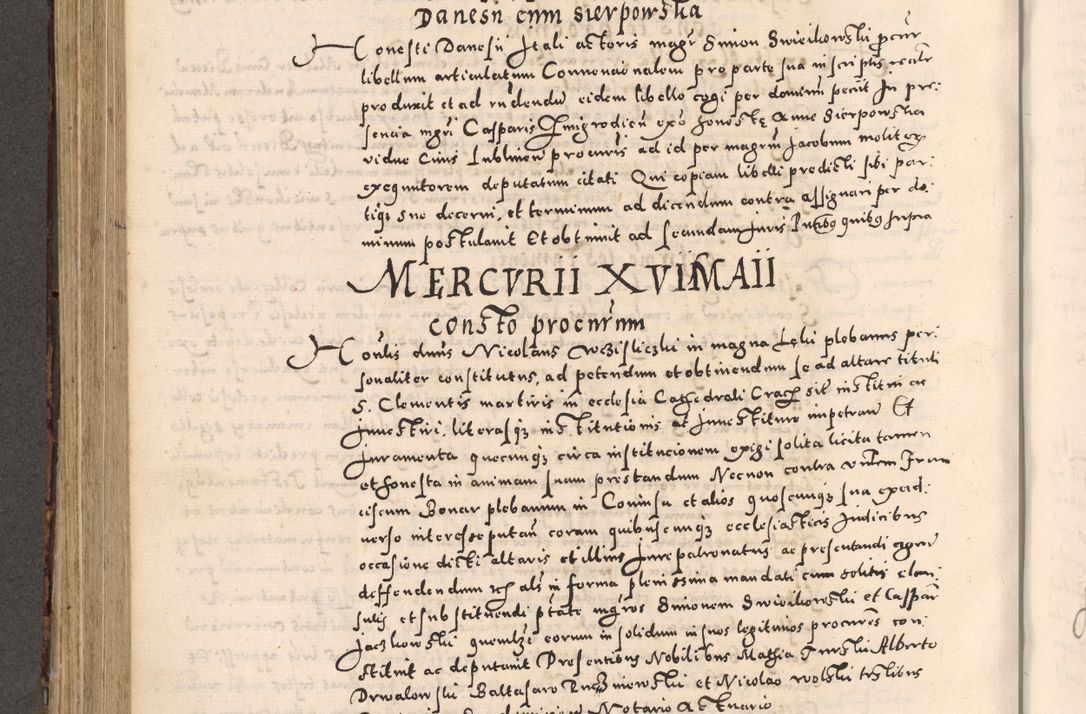 Danesii cum sierpowska
Honesti Danesii Itali actoris magr Simon Swieikowski procur
libellum articulatum Conuencionalem pro parte sua in scriptis realr
produxit et ad rndendu eidem libello cogi per dominum peciit In pre:
sencia mgri Casparis exo honeste Anne Sierpowska
vidue Ciuis Lublinen procuris ad id per magrm Jacobum
exequutorem deputatum citati Qui copiam libelli predicti sibi par:
tiqz sue decerni, et terminum ad dicendum contra assignari per do:
minum postulauit Et obtinuit ad secundam Juris Pntibus quibus supra
MERCVRII XVIII MAII
consto procurum
Honlis dnus Nicolaus in magna plebanus per:
sonaliter constitutus, ad petendum et obtinendum se ad altare tituli
S. Clementis martiris in ecclesia Cathedrali Crac sit institui ac
Inuestiri, literasqz institutionis ac Inuestiture impetran Et
Juramenta quecunqz circa institucionem exigi solita licita tamen
et honesta in animam suam prestandum Necnon contra Fran
ciscum Bonar plebanum in et alios quoscunqz sua ex ad:
uerso interesse putan coram quibuscunqz ecclesiasticis Judicibus
occasione dicti altaris et illius Jurepatronatus ac presentandi
deffendendum als in forma plenissima mandati cum solitis clau:
sulis et substituendi ptate mgros Simonem Swieikowski et Caspar
Jaczkowski quemlibet eorum in solidum in suos legitimos procures con:
stituit ac deputauit Presentibus Nobilibus Mathia Turski Alberto
Drwalowski Baltasaro et Nicolao wolski testibus
Notario Actuario